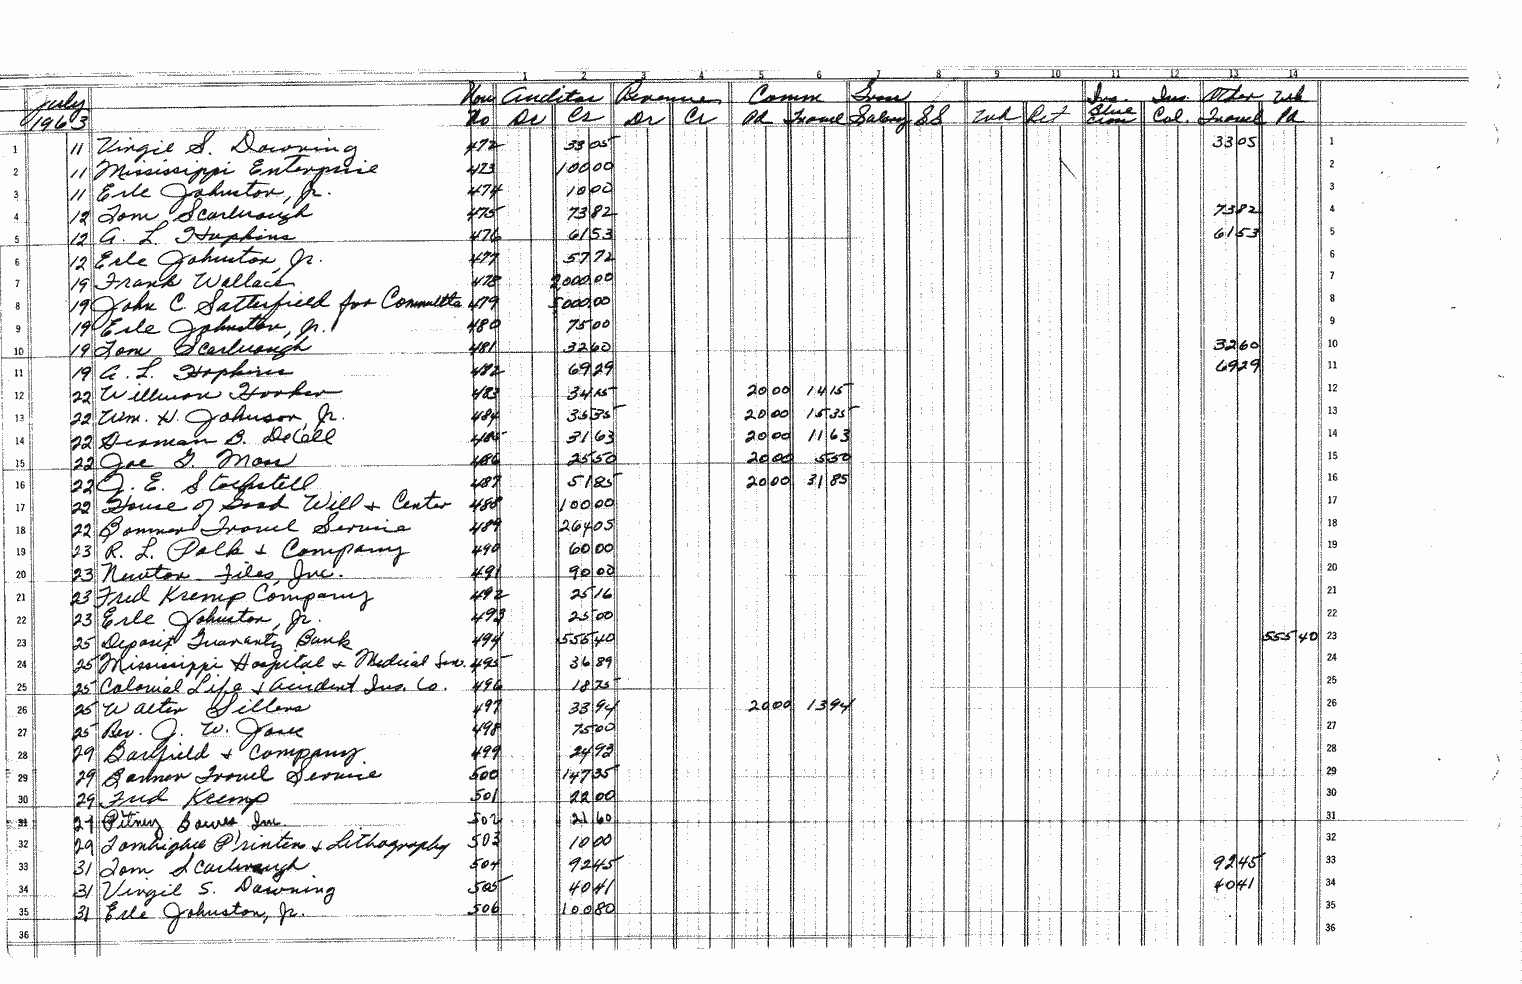 1 2 3 4 5 6 7 8 9 10 11 12 13 14
July 1963 No Auditor Revenue Comm Trav Ins. Ins. Other Wh
No Dr Cr Dr Cr Pd Travel Salary SS Wh Ret Blue Cross Col. Travel Pd
1 11 Virgil S. Downing 472 33 05 33 05 1
2 11 Mississippi Enterprise 473 100 00 2
3 11 Erle Johnston, Jr. 474 10 00 3
4 12 Tom Scarbrough 475 73 82 73 82 4
5 12 A. L. Hopkins 476 61 53 61 53 5
6 12 Erle Johnston, Jr. 477 57 72 6
7 19 Frank Wallace 478 2000 00 7
8 19 John C. Satterfield for Committee 479 5000 00 8
9 19 Erle Johnston, Jr. 480 75 00 9
10 19 Tom Scarbrough 481 32 60 32 60 10
11 19 A. L. Hopkins 482 69 29 69 29 11
12 22 Wilburn Hooker 483 34 15 20 00 14 15 12
13 22 Wm. H. Johnson, Jr. 484 35 35 20 00 15 35 13
14 22 Herman B. DeCell 485 31 63 20 00 11 63 14
15 22 Joe G. Moss 486 25 50 20 00 5 50 15
16 22 J. E. Stockstell 487 51 85 20 00 31 85 16
17 22 House of Good Will + Center 488 100 00 17
18 22 Banner Travel Service 489 264 05 18
19 23 R. L. Polk + Company 490 60 00 19
20 23 Newton Files, Inc. 491 90 00 20
21 23 Fred Kremp Company 492 25 16 21
22 23 Erle Johnston, Jr. 493 25 00 22
23 25 Deposit Guaranty Bank 494 555 40 555 40 23
24 25 Mississippi Hospital + Medical Ser. 495 36 89 24
25 25 Colonial Life + Accident Ins. Co. 496 18 75 25
26 25 Walter Sillers 497 33 94 20 00 13 94 26
27 25 Rev. J. W. 498 75 00 27
28 29 Barfield + Company 499 24 93 28
29 29 Banner Travel Service 500 147 35 29
30 29 Fred Kremp 501 22 00 30
31 29 Pitney Bowes Inc. 502 21 60 31
32 29 Tombigbee Printers + Lithography 503 10 00 32
33 31 Tom Scarbrough 504 92 45 92 45 33
34 31 Virgil S. Downing 505 40 41 40 41 34
35 31 Erle Johnston, Jr. 506 100 80 35
36 36